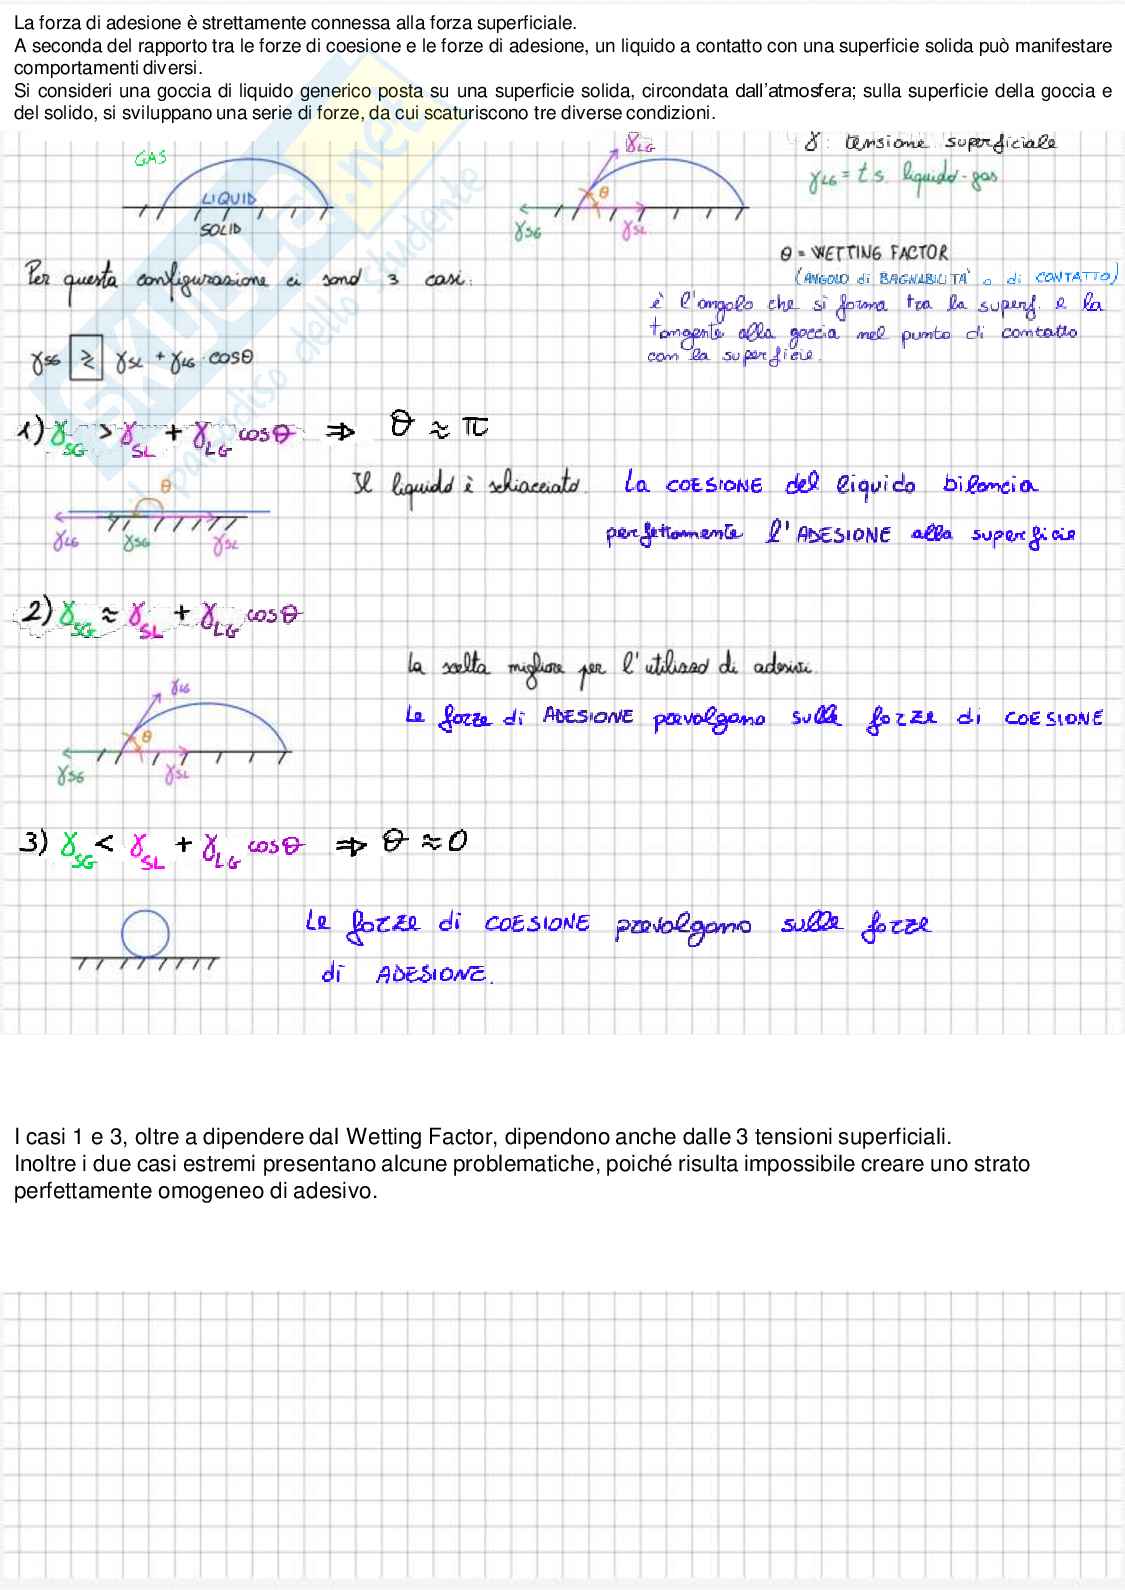 La forza di adesione è strettamente connessa alla forza superficiale.
A seconda del rapporto tra le forze di coesione e le forze di adesione, un liquido a contatto con una superficie solida può manifestare
comportamenti diversi.
Si consideri una goccia di liquido generico posta su una superficie solida, circondata dall'atmosfera; sulla superficie della goccia e
del solido, si sviluppano una serie di forze, da cui scaturiscono tre diverse condizioni.
GAS
LIQUID
SOLID
γLG
θ
γSG
γSL
γ: tensione superficiale
γLG = t s. liquido-gas
θ = WETTING FACTOR
(ANGOLO di BAGNABILITA' o di CONTATTO)
è l'angolo che si forma tra la superf. e la
tangente alla goccia nel punto di contatto
con la superficie.
Per questa configurazione ci sono 3 casi:
γSG ≷ γSL + γLG · cosθ
1) γSG > γSL + γLG cosθ ⇒ θ ≈ π
θ
γLG γSG γSL
Il liquido è schiacciato. La COESIONE del liquido bilancia
perfettamente l'ADESIONE alla superficie
2) γSG ≈ γSL + γLG cosθ
γLG
θ
γSG γSL
la scelta migliore per l'utilizzo di adesivi.
Le forze di ADESIONE prevalgono sulle forze di COESIONE
3) γSG < γSL + γLG cosθ ⇒ θ ≈ 0
Le forze di COESIONE prevalgono sulle forze
di ADESIONE.
I casi 1 e 3, oltre a dipendere dal Wetting Factor, dipendono anche dalle 3 tensioni superficiali.
Inoltre i due casi estremi presentano alcune problematiche, poiché risulta impossibile creare uno strato
perfettamente omogeneo di adesivo.
SKUOLA.net
il paradiso dello studente